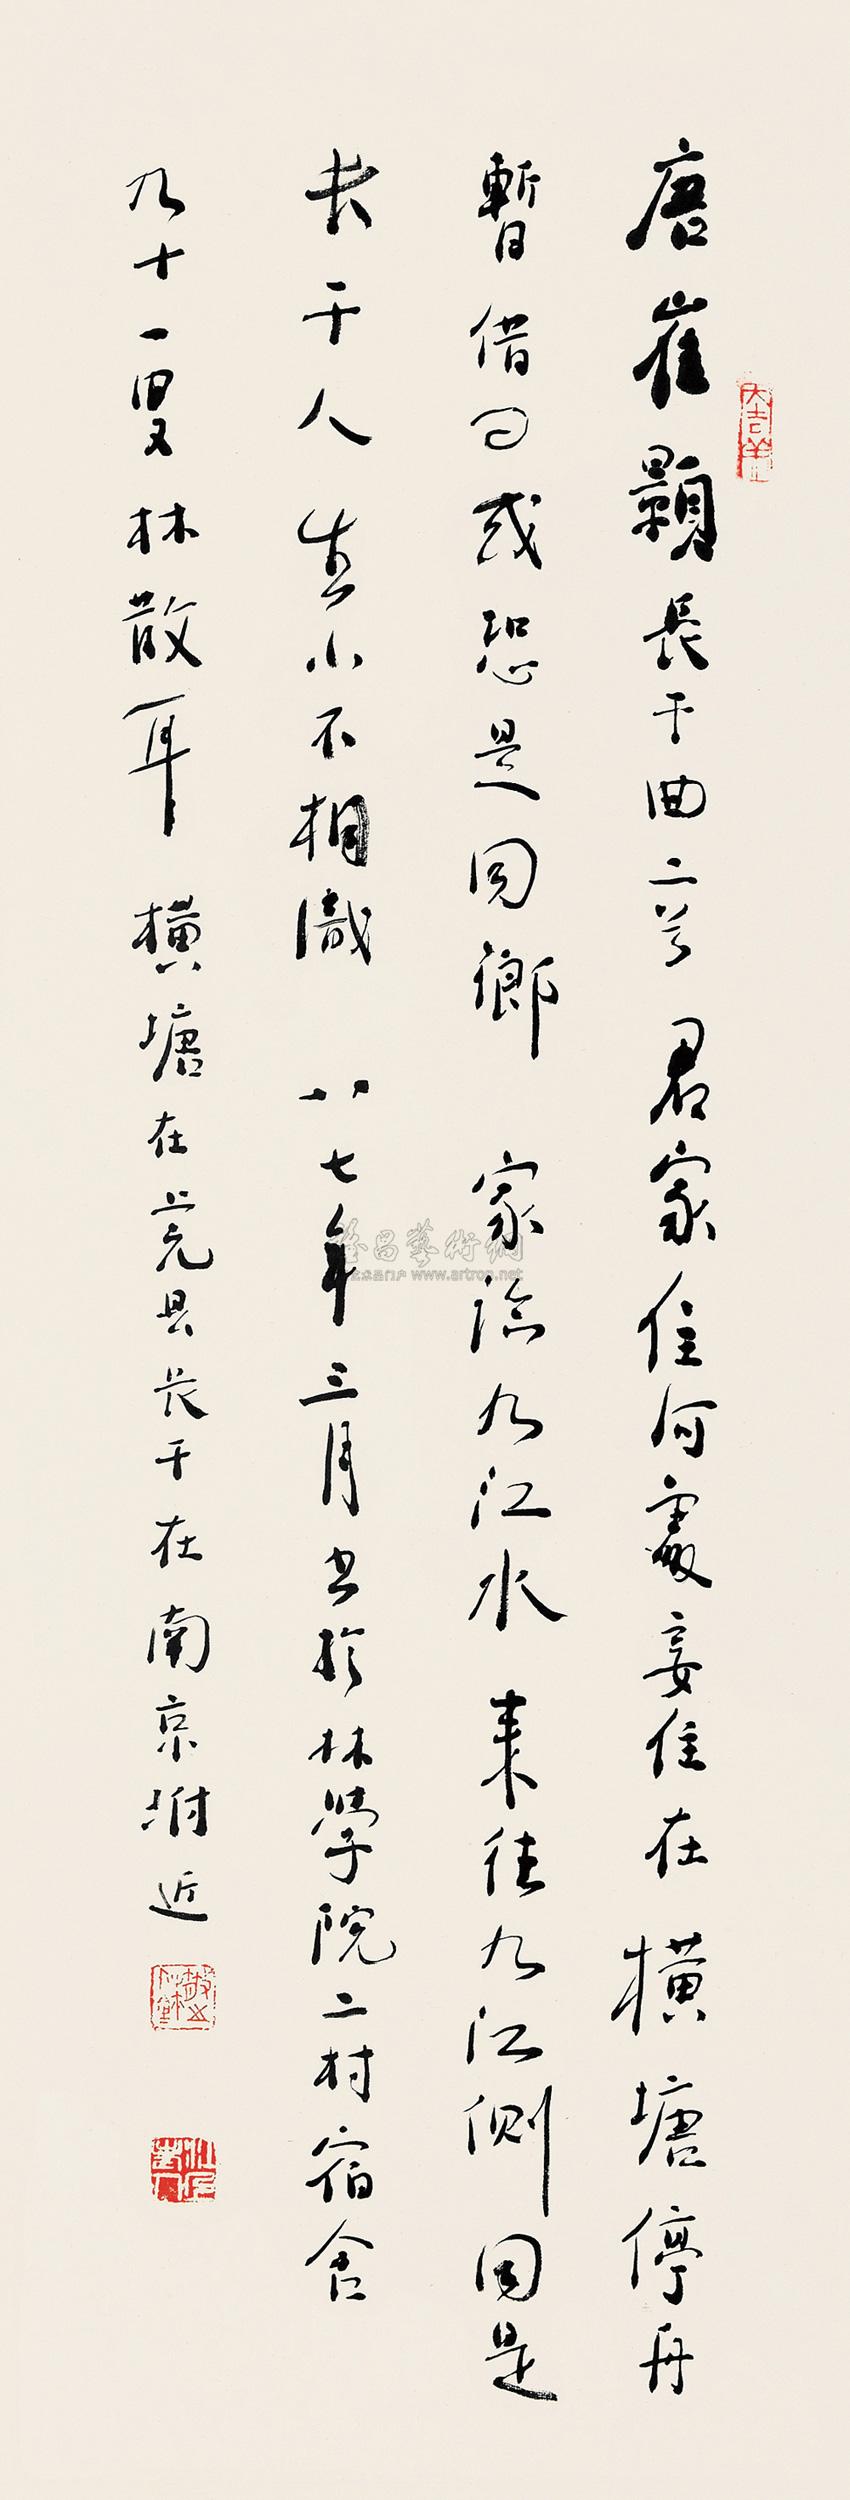 唐崔顥長干曲二首君家住何處妾住在橫塘停舟
暫借問或恐是同鄉家臨九江水來往九江側同是
长干人生小不相識八七年三月书於林學院二村宿舍
九十一叟林散耳橫塘在江宁县长干在南京附近
大吉羊
雅昌藝術網
艺术品门户 www.artron.net